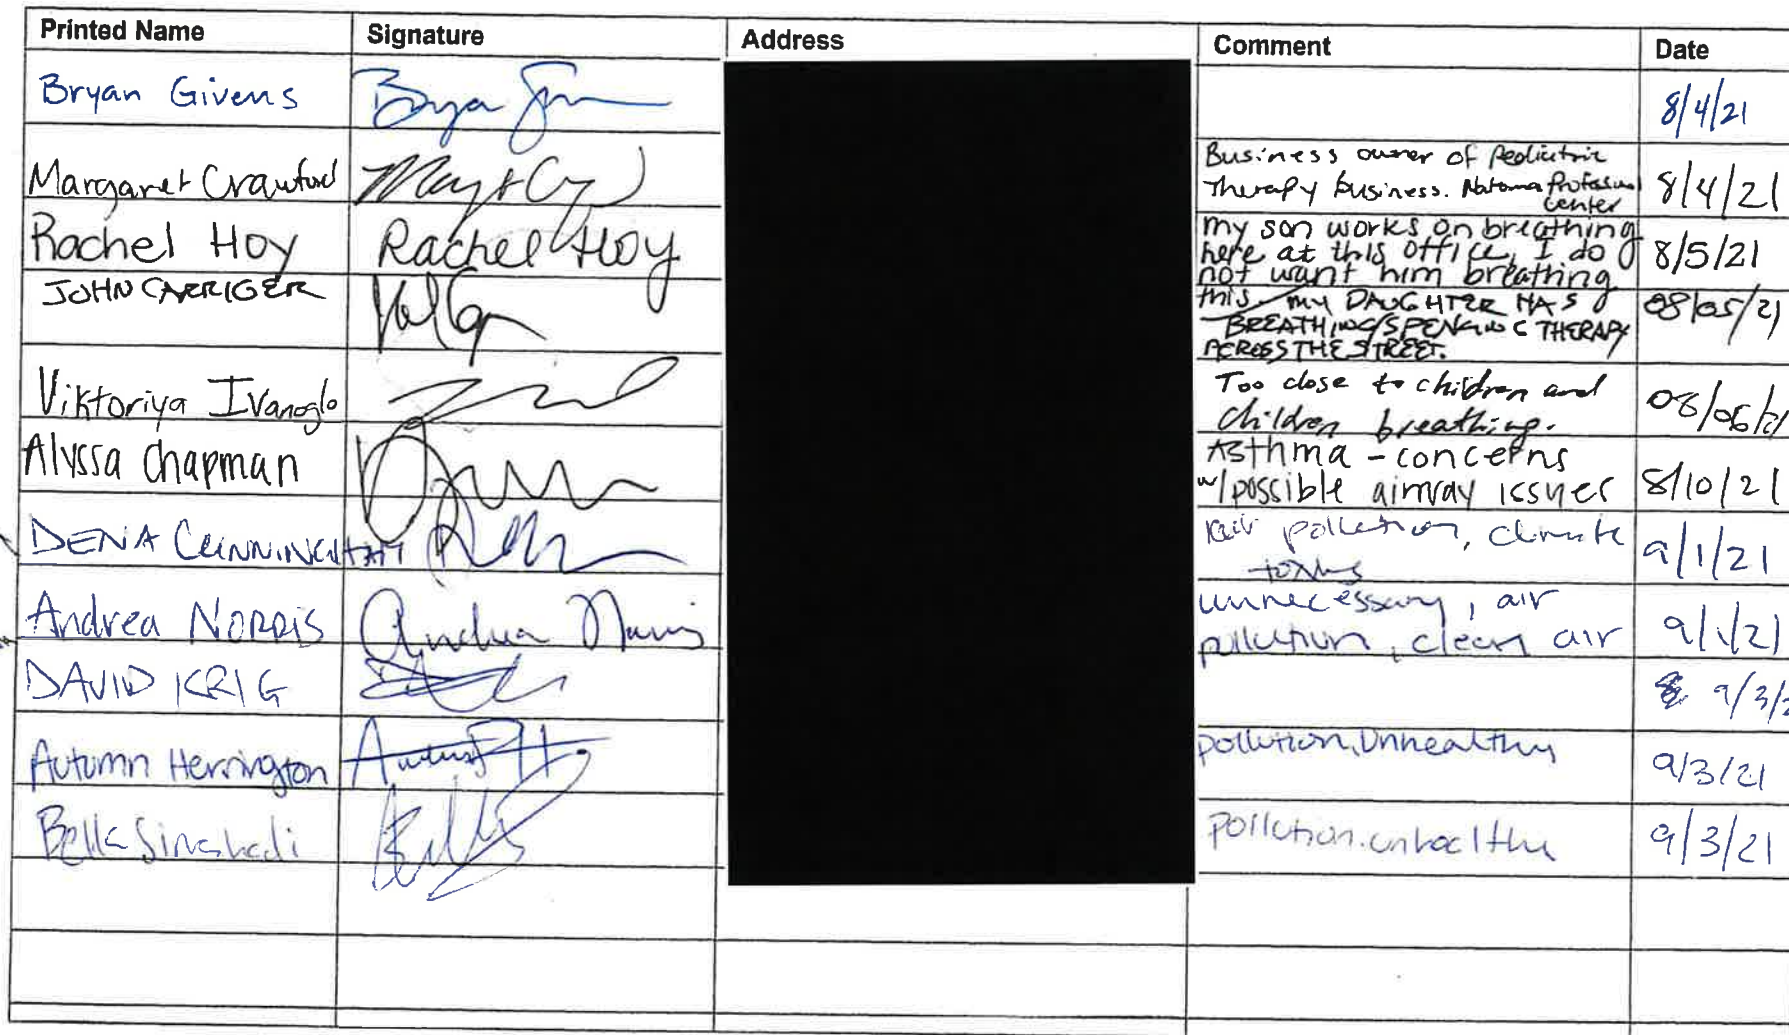 Printed Name Signature Address Comment Date
Bryan Givens 8/4/21
Margaret Crawford Business owner of Pediatric
Therapy business. Natoma Professional
Center 8/4/21
Rachel Hoy Rachel Hoy my son works on breathing
here at this office, I do
not want him breathing
this. 8/5/21
JOHN CARRIGER MY DAUGHTER HAS
BREATHING/SPEAKING THERAPY
ACROSS THE STREET. 08/05/21
Viktoriya Ivanoglo Too close to children and
children breathing. 08/06/21
Alyssa Chapman Asthma - concerns
w/possible airway issues 8/10/21
DENA CUNNINGHAM air pollution, climate
9/1/21
Andrea NORRIS Andrea Norris unnecessary, air
pollution, clean air 9/1/21
DAVID KRIG 9/3/2
Autumn Herrington pollution, Unhealthy 9/3/21
Bella pollution. unhealthy 9/3/21